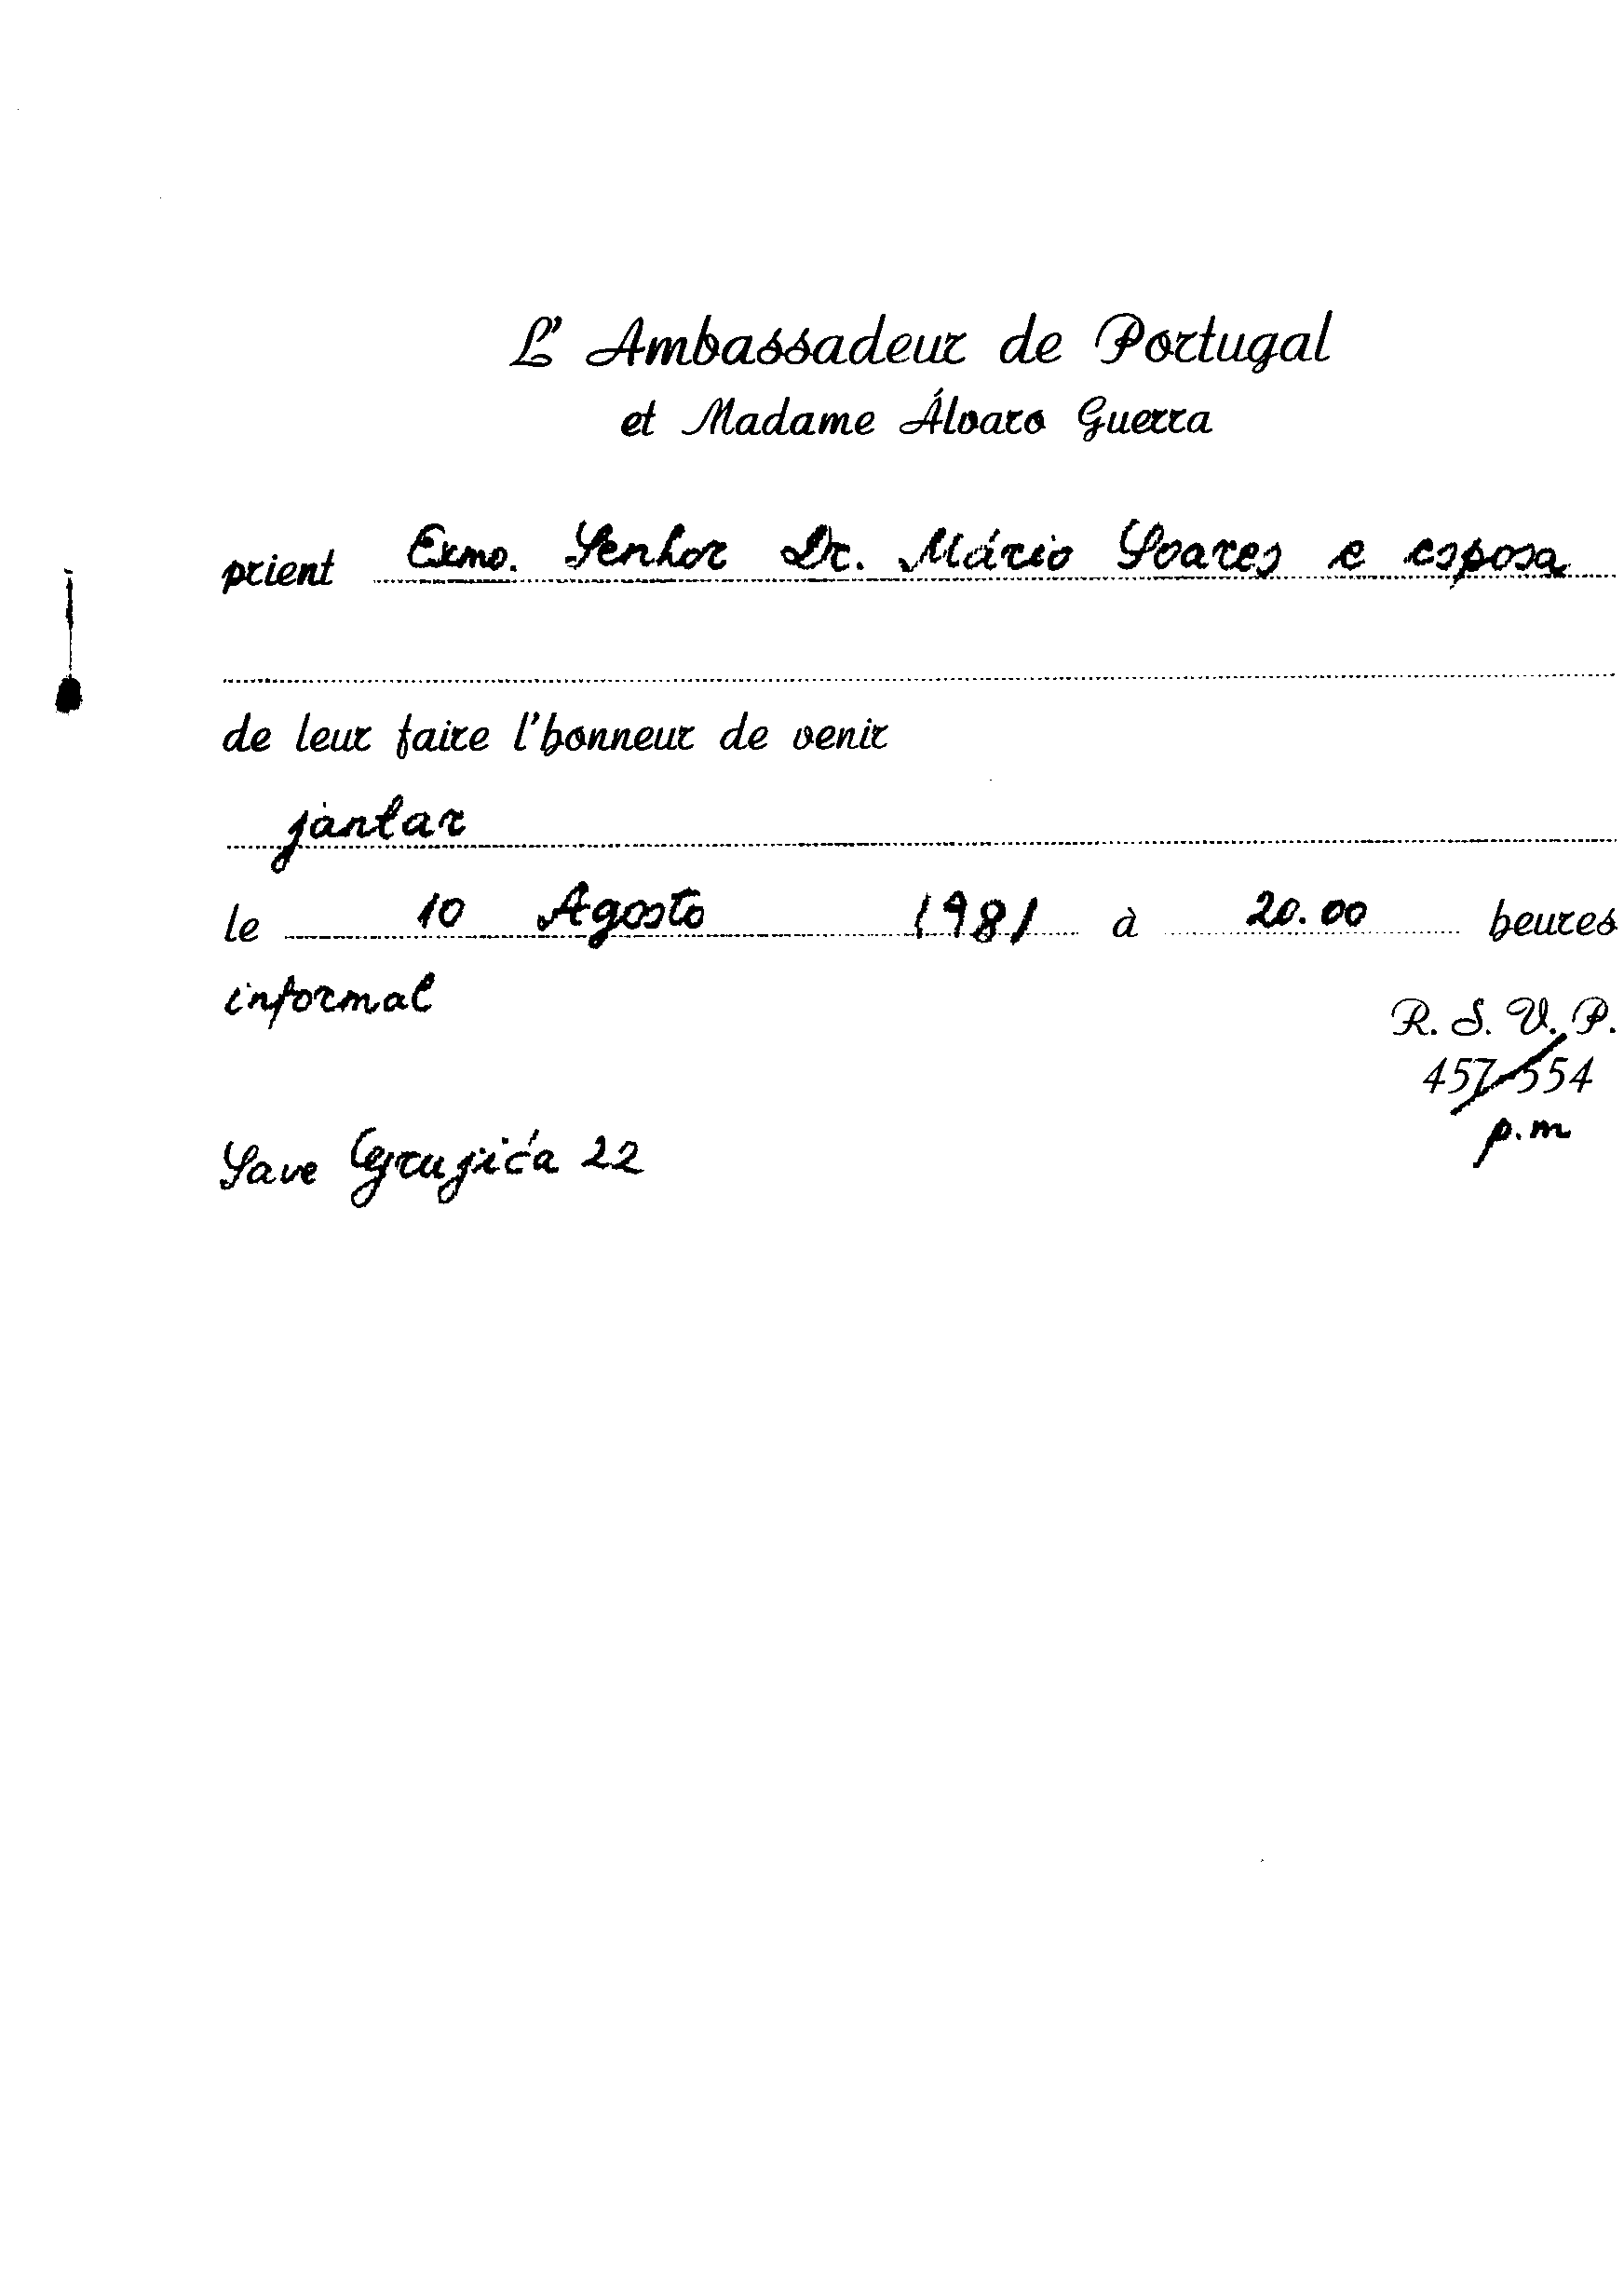 L' Ambassadeur de Portugal
et Madame Álvaro Guerra
prient Exmo. Senhor Dr. Mário Soares e esposa
de leur faire l'honneur de venir
jantar
le 10 Agosto 1981 à 20.00 heures
informal
R. S. V. P.
457-554
p.m
Save Grujića 22